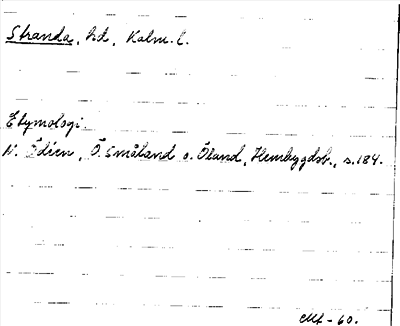 Stranda, hd, Kalm. l.
Etymologi
N. Ödéen, Ö. Småland o. Öland, Hembygdsb., s. 184.
-60.